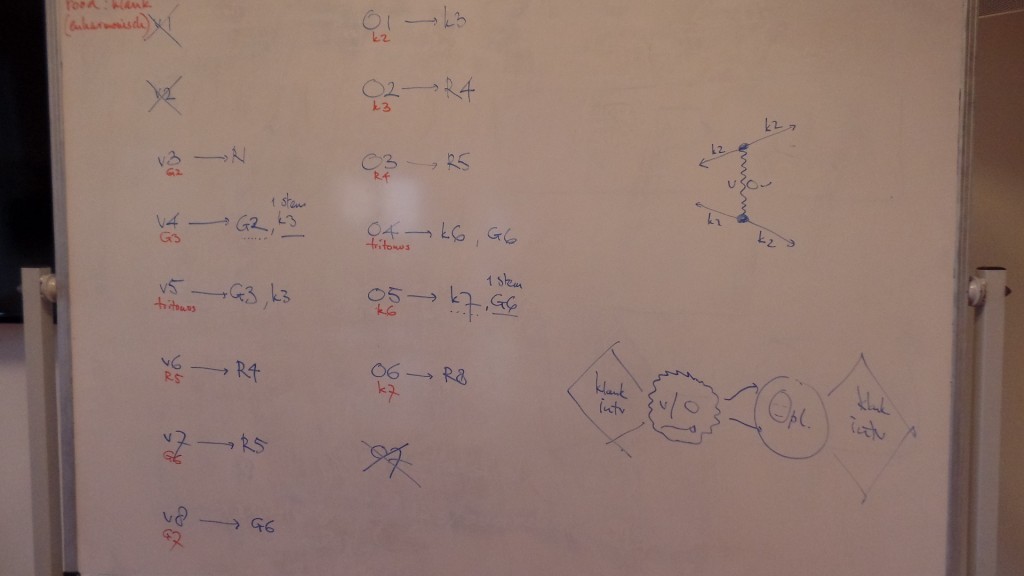 rood: klank
(enharmonisch)
v1
v2
v3 → N
G2
v4 → G2, k3
1 stem
G3
v5 → G3, k3
tritonus
v6 → R4
R5
v7 → R5
G6
v8 → G6
G7
O1 → k3
k2
O2 → R4
k3
O3 → R5
R4
O4 → k6, G6
tritonus
O5 → k7, G6
1 stem
k6
O6 → R8
k7
O7
k2
k2
v O
k2
k2
klank
intv
v/O
Opl.
klank
intv